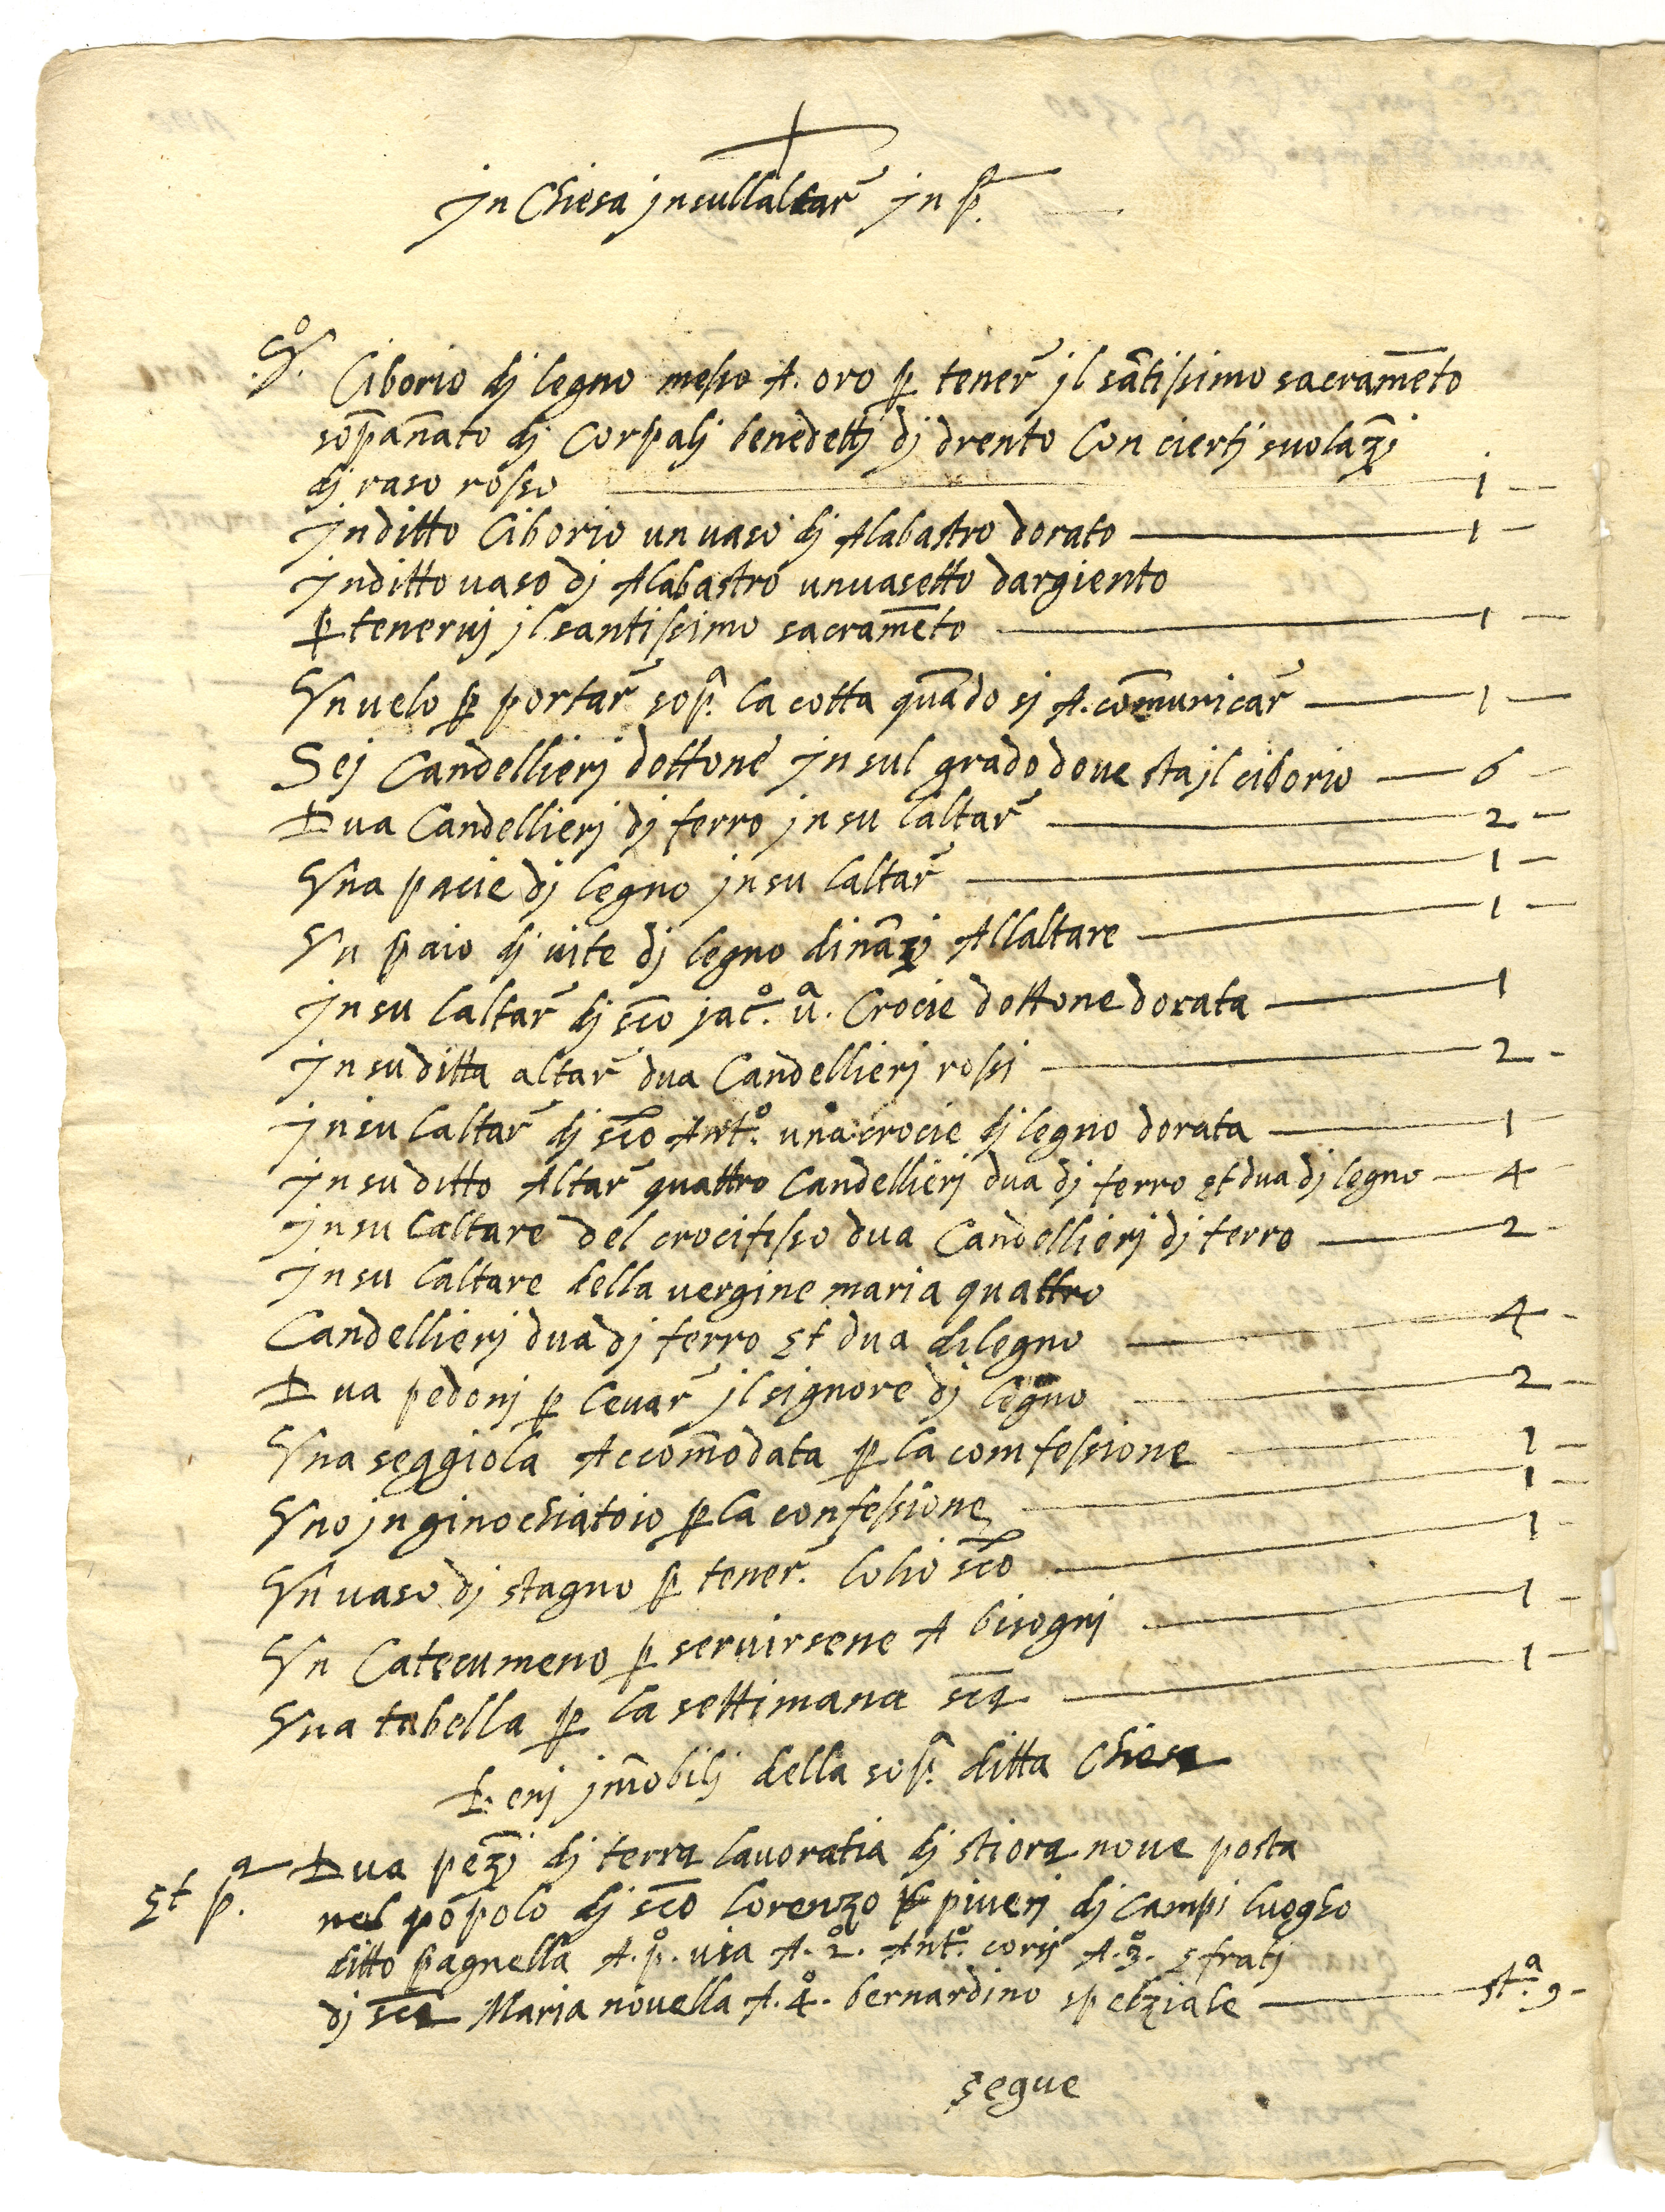 jn Chiesa jnsullaltar jn pª.
.Yº. Ciborio dj legno messo A. oro p tener jl sātissimo sacramēto
sop̄an̄ato dj Corpalj benedettj dj drento Con ciertj suolazj
dj raso rosso 1
jnditto Ciborio un uaso dj Alabastro dorato 1
jnditto uaso dj Alabastro unuasetto dargiento
p teneruj jl santissimo sacramēto 1
Yn uelo p portar sop. la cotta quādo sj A. comunicar 1
Sej Candellierj dottone jn sul grado doue sta jl ciborio 6
Dua Candellierj dj ferro jn su laltar 2
Yna pacie dj legno jn su laltar 1
Yn paio dj uite dj legno dināzj Allaltare 1
jn su laltar dj sc̄o jacº. uª. Crocie dottone dorata 1
jn su ditta altar dua Candellierj rossi 2
jn su laltar dj sc̄o Antº. una crocie dj legno dorata 1
jn su ditto Altar quattro Candellierj dua dj ferro et dua dj legno 4
jn su laltare del crocifisso dua Candellierj dj ferro 2
jn su laltare della uergine maria quattro
Candellierj dua dj ferro et dua di legno 4
Dua pedonj p leuar jl signore dj legno 2
Yna seggiola Accom̄odata p la comfessione 1
Yno jnginochiatoio p la confessione 1
Yn uaso dj stagno p tener. lolio sc̄o 1
Yn Catecumeno p seruirsene A bisognj 1
Yna tabella p la settimana sc̄a 1
Benj jm̄obilj della sop. ditta Chiesa
Et pª. Dua pezj dj terra lauoratia dj stiora noue posta
nel popolo dj sc̄o lorenzo piuerj dj Campi luogho
ditto pagnella A. pº. uia A. 2º. Antº. corsj A. 3º. e fratj
dj sc̄a Maria nouella A. 4º. bernardino spelziale stª. 9
segue